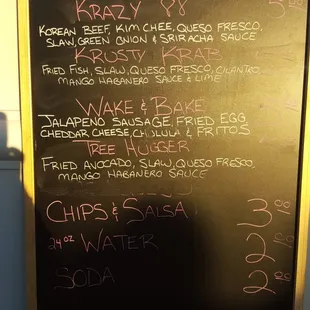 KRAZY
KOREAN BEEF, KIM CHEE, QUESO FRESCO,
SLAW, GREEN ONION & SRIRACHA SAUCE
KRUSTY KRAB
FRIED FISH, SLAW, QUESO FRESCO, CILANTRO,
MANGO HABANERO SAUCE & LIME
WAKE & BAKE
JALAPENO SAUSAGE, FRIED EGG,
CHEDDAR CHEESE, CHOLULA & FRITOS
TREE HUGGER
FRIED AVOCADO, SLAW, QUESO FRESCO,
MANGO HABANERO SAUCE
CHIPS & SALSA 3.00
24 OZ WATER 2.00
SODA 2.00